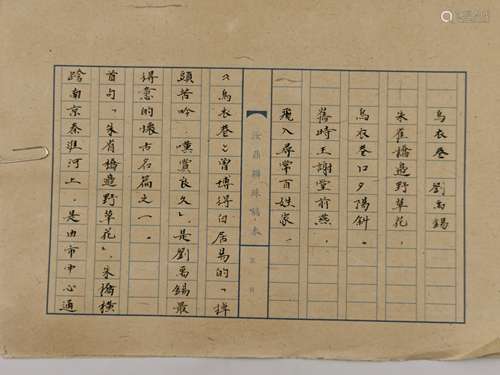 烏衣巷 劉禹錫
朱雀橋邊野草花，
烏衣巷口夕陽斜。
舊時王謝堂前燕，
飛入尋常百姓家。
《烏衣巷》曾博得白居易的「掉
頭苦吟，嘆賞良久」，是劉禹錫最
得意的懷古名篇之一。
首句「朱雀橋邊野草花」，朱橋橫
跨南京秦淮河上，是由市中心通